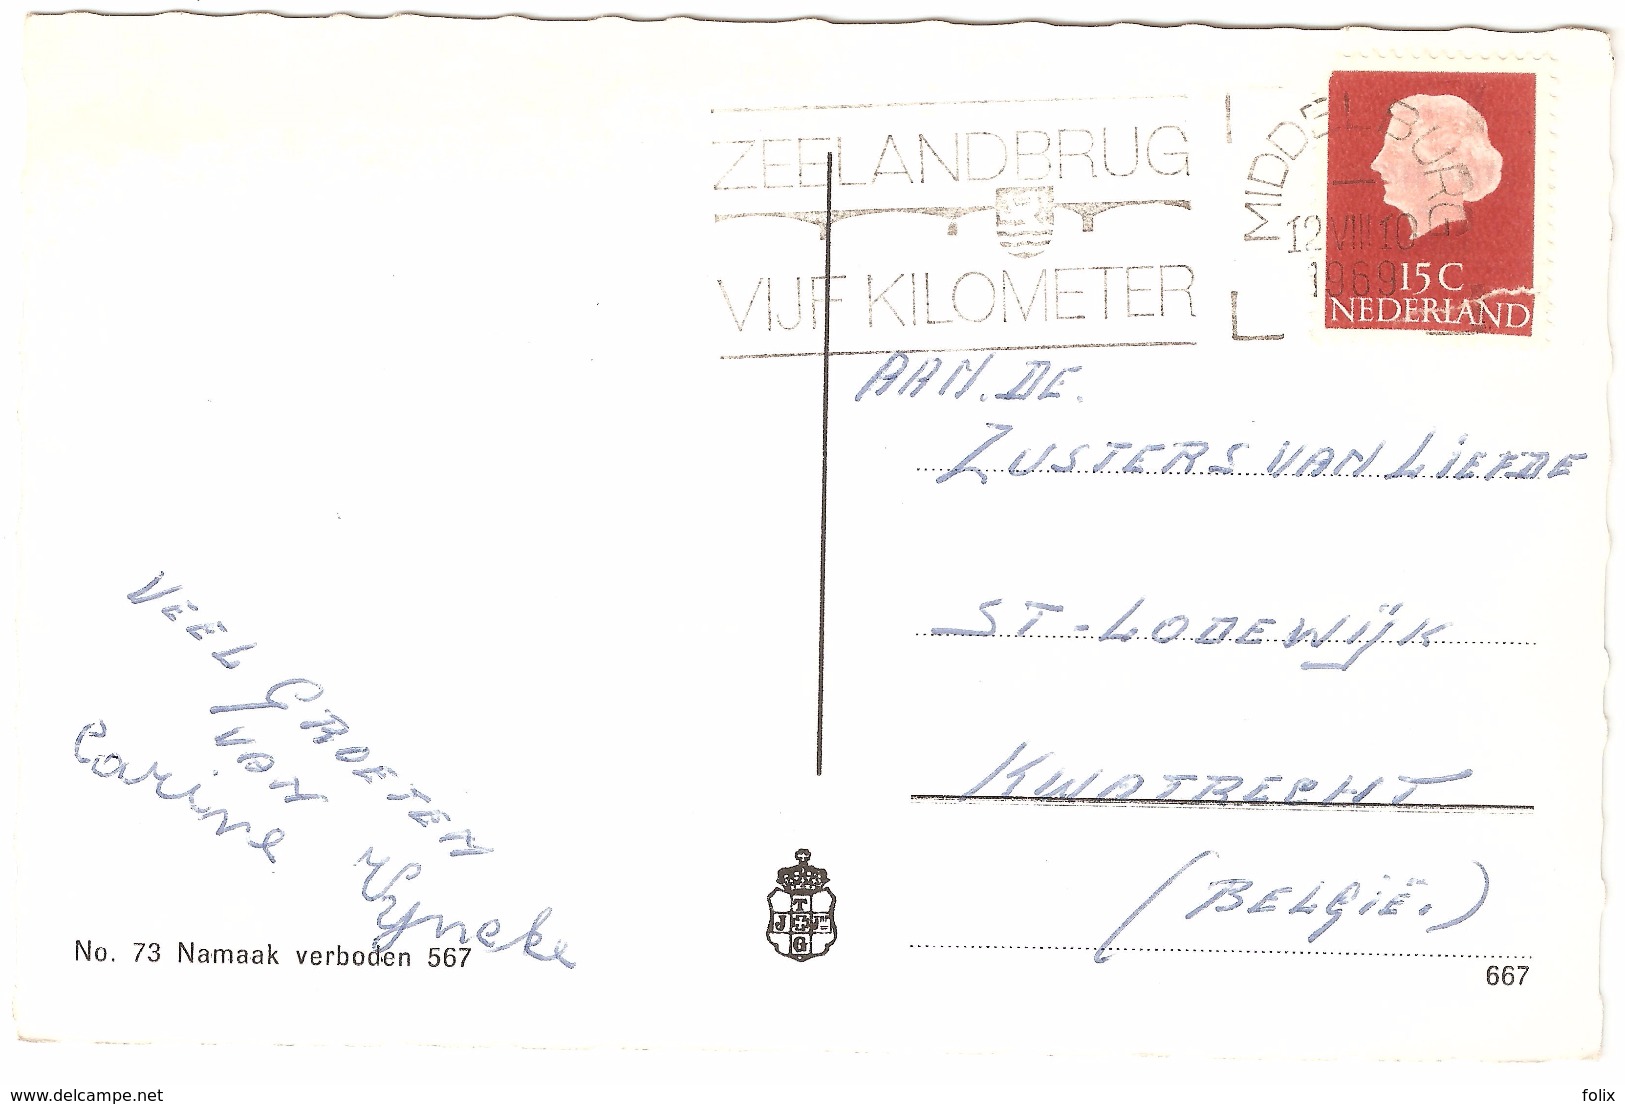 ZEELANDBRUG
VIJF KILOMETER
MIDDELBURG
12 VIII 10
1969
15 C
NEDERLAND
AAN. DE.
ZUSTERS VAN LIEFDE
ST-LODEWIJK
KWATRECHT
(BELGIË.)
VEEL GROETEN
VAN
Carine Wyncke
T
J J
G
No. 73 Namaak verboden 567
667
www.delcampe.net
folix